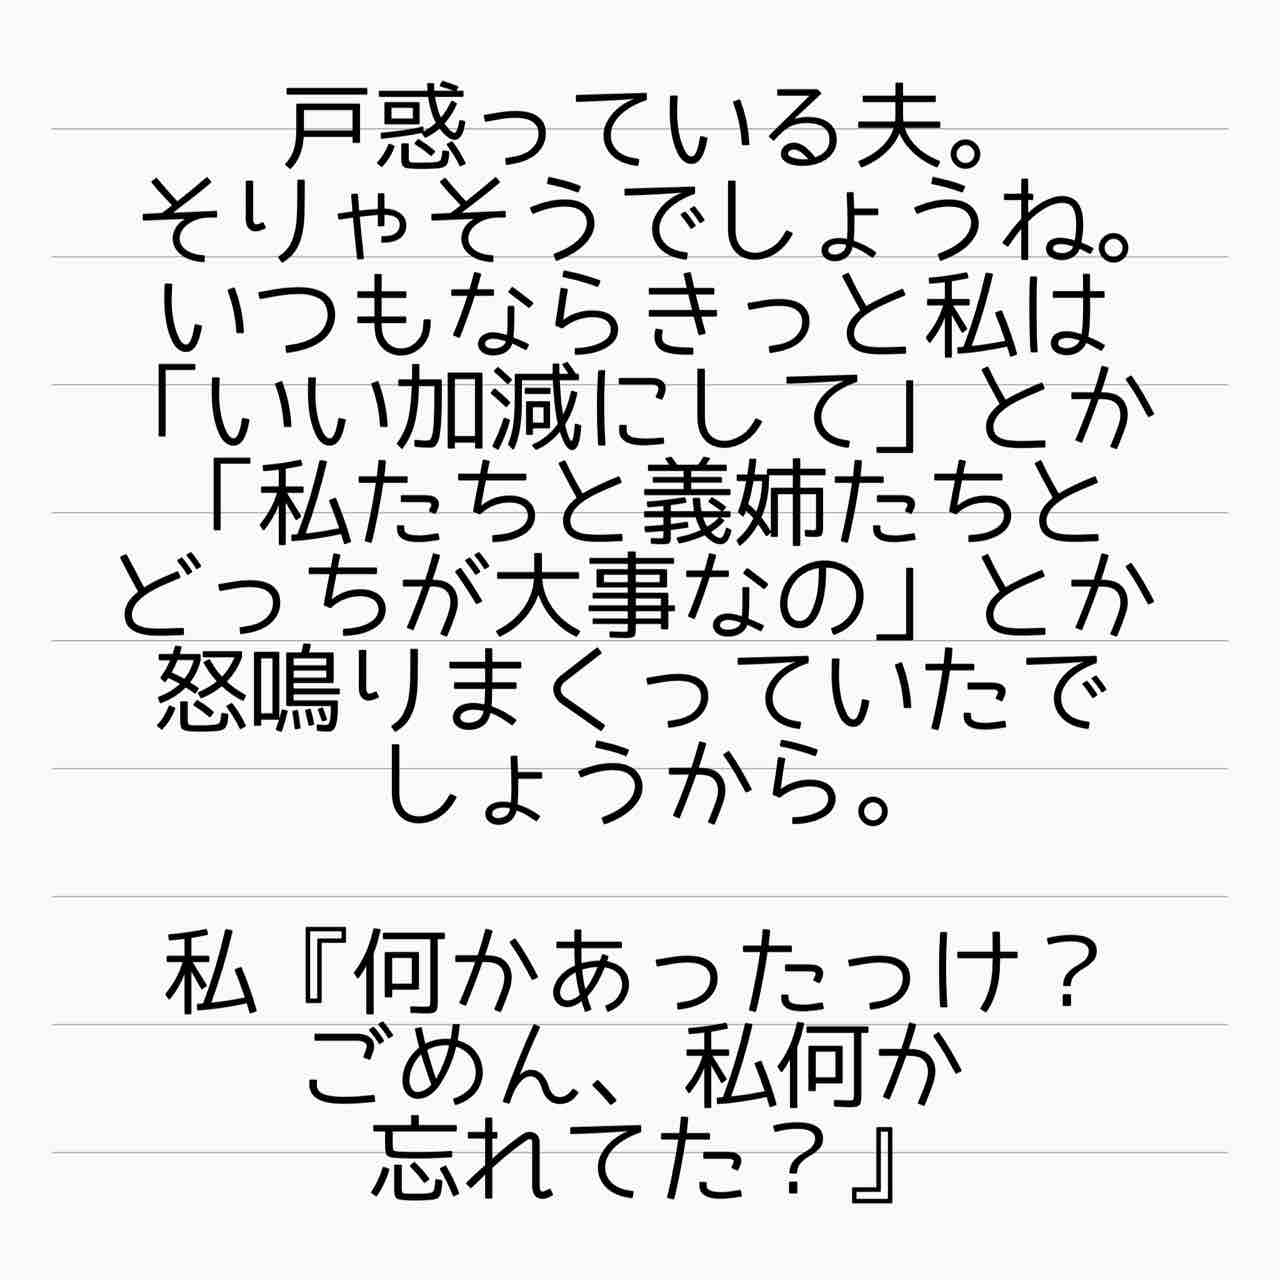 戸惑っている夫。
そりゃそうでしょうね。
いつもならきっと私は
「いい加減にして」とか
「私たちと義姉たちと
どっちが大事なの」とか
怒鳴りまくっていたで
しょうから。
私『何かあったっけ？
ごめん、私何か
忘れてた？』